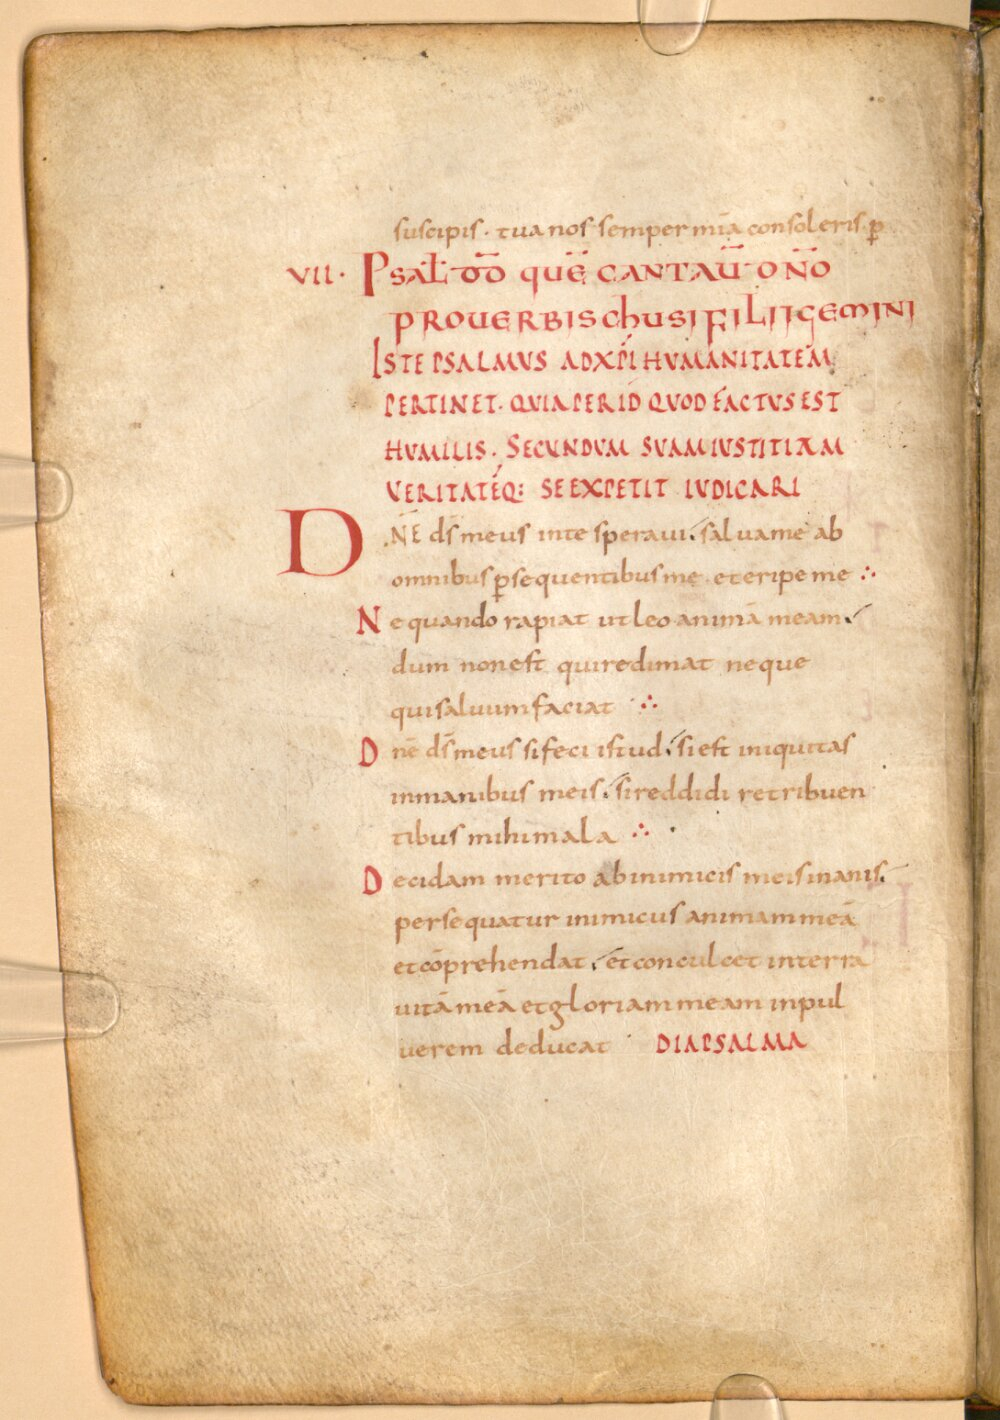 suscipis. tua nos semper mia consoleris. ꝑ
VII. PSAL̅ DD̅ QUE̅ CANTAU̅ DN̅O
PROUERBIS CHUSI FILII GEMINI
ISTE PSALMUS AD XP̅I HUMANITATEM
PERTINET. QUIA PER ID QUOD FACTUS EST
HUMILIS. SECUNDUM SUAM IUSTITIAM
VERITATEQ: SE EXPETIT IUDICARI
DN̅E ds̅ meus in te speraui. saluame ab
omnibus ꝑsequentibus me. et eripe me ∴
Ne quando rapiat ut leo animā meam.
dum non est qui redimat neque
qui saluum faciat ∴
Dne̅ ds̅ meus si feci istud. si est iniquitas
in manibus meis. si reddidi retribuen
tibus mihi mala ∴
Decidam merito ab inimicis meis inanis.
persequatur inimicus animam meā
et cōprehendat. et conculcet in terra
uitā meā et gloriam meam in pul
uerem deducat DIAPSALMA